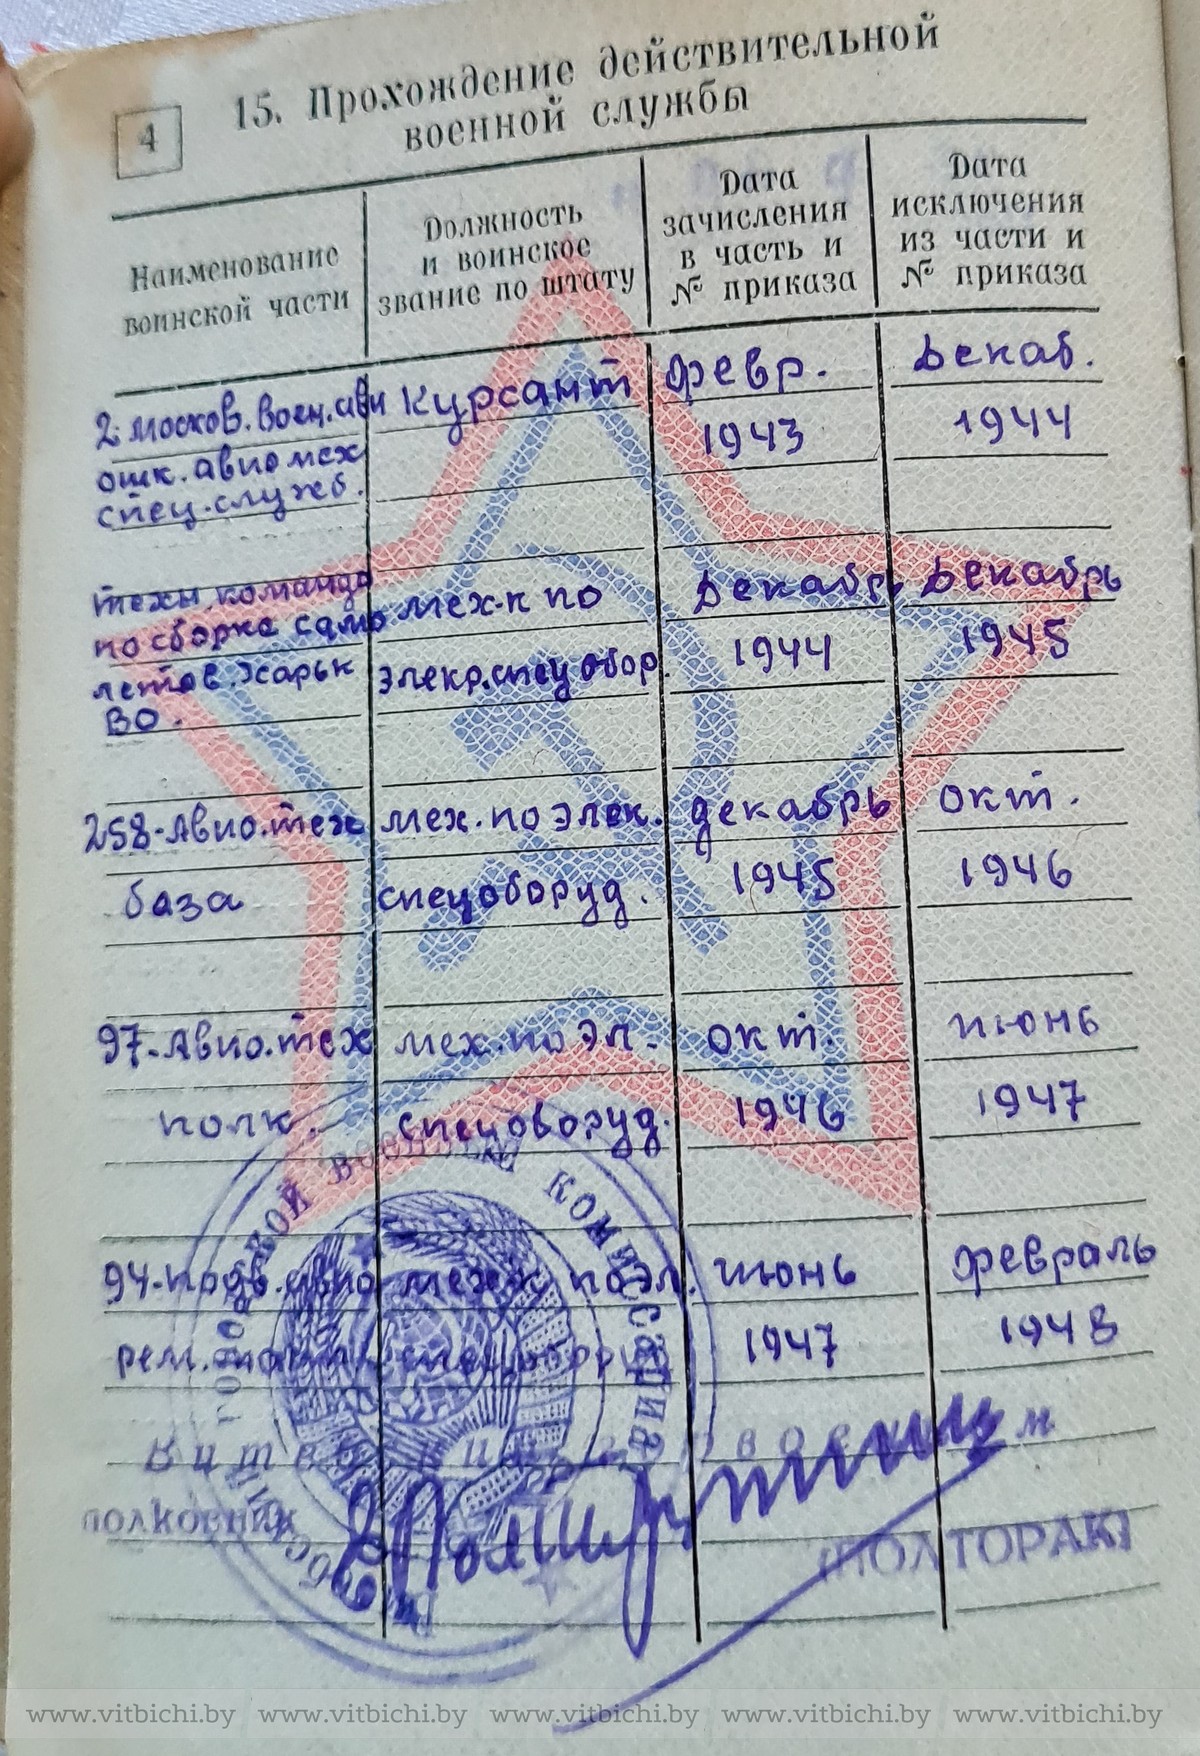 4
15. Прохождение действительной
военной службы
Наименование
воинской части
Должность
и воинское
звание по штату
Дата
зачисления
в часть и
№ приказа
Дата
исключения
из части и
№ приказа
2 москов. воен. ави
ошк. авио мех
спец. служб.
Курсант
февр.
1943
Декаб.
1944
техн. команда
по сборке само
летов. Харьк
ВО.
мех-к по
элекр. спец обор.
Декабрь
1944
Декабрь
1945
258-Авио. тех
база
мех. по элек.
спецоборуд.
декабрь
1945
окт.
1946
97-Авио. тех
полк.
мех. по эл.
спецоборуд.
окт.
1946
июнь
1947
94-подв. авио
рем.
по эл.
июнь
1947
февраль
1948
военный комиссариат
полковник
(ПОЛТОРАК)
www.vitbichi.by www.vitbichi.by www.vitbichi.by www.vitbichi.by www.vitbichi.by